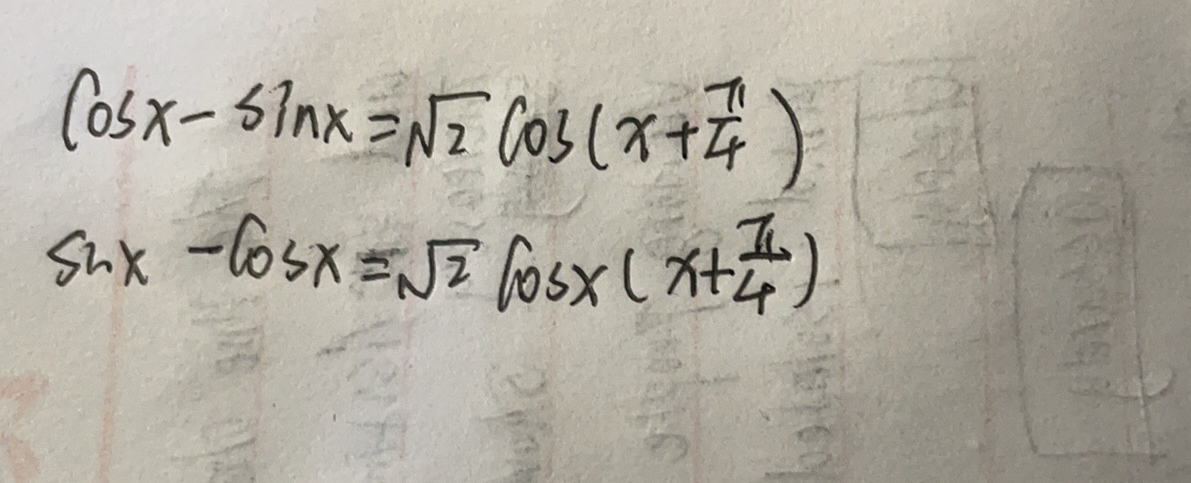 cosx - sinx = √2 cos(x + π/4)
sinx - cosx = √2 cosx(x + π/4)